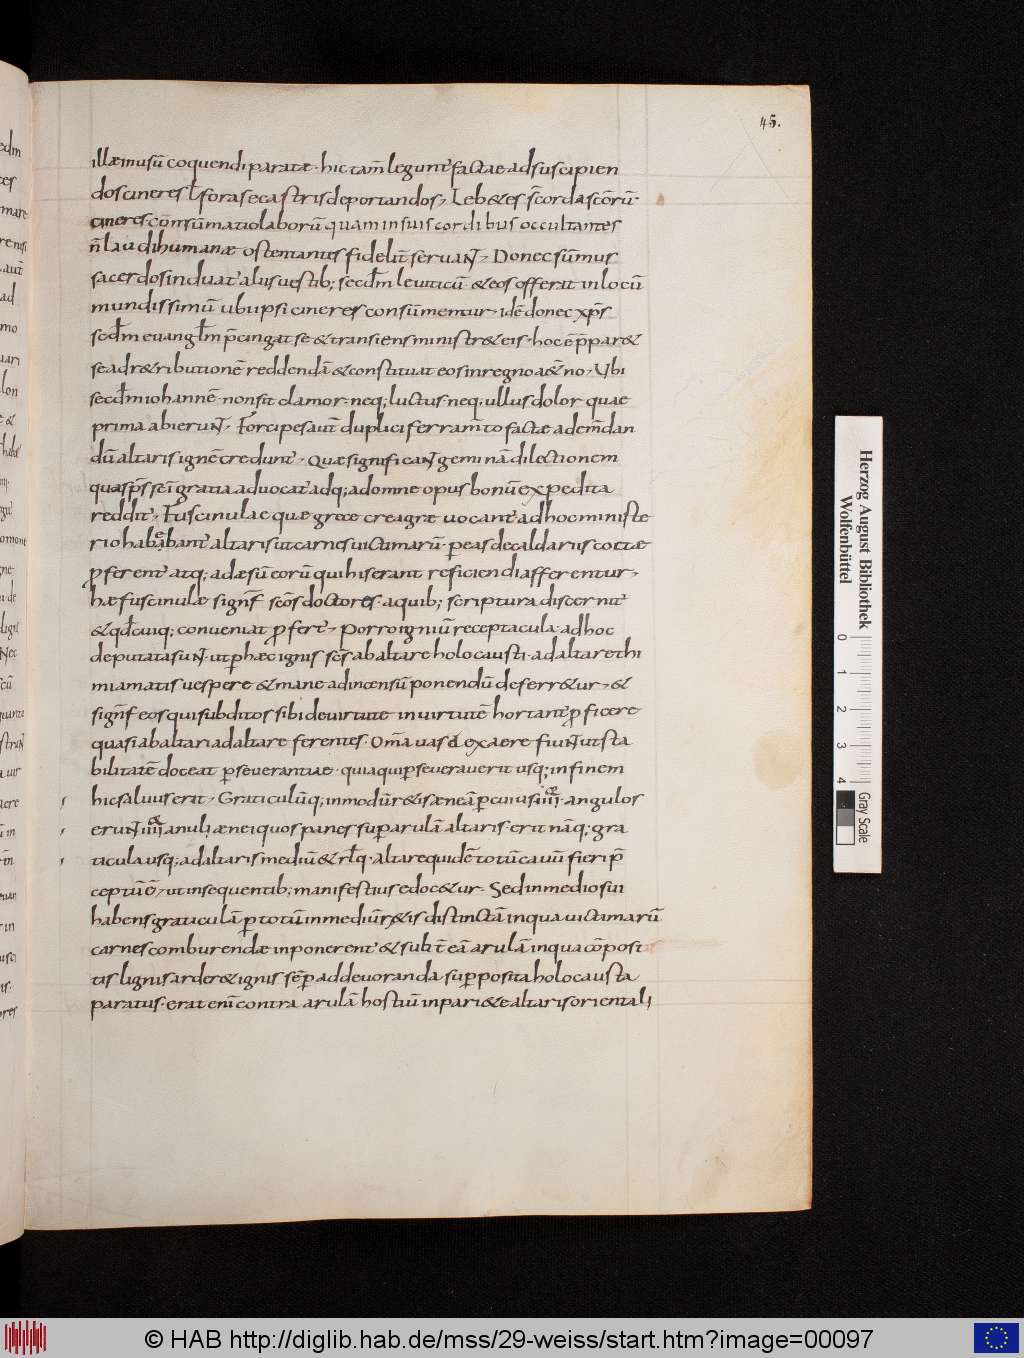 45.
illae in usū coquendi paratae · hic tam̄ legunt factae ad suscipien
dos cineres ł foras e castris deportandos, Leb& es s̄c̄orda sc̄orū ·
cineres cōnsūmatio laborū quam in suis cordibus occultantes
n̄ laudi humanae ostentantes fidelit̄ seruaNT, Donec sūmus
sacerdos induat̄ aliis uestib; sec̄dm leuiticū & eos offerat in locū
mundissimū ubi ipsi cineres consūmentur, idē donec xp̄s
sec̄dm euangłm p̄cingat se & transiens ministr& eis · hoc ē p̄par&
se ad r&ributionē reddendā & constituat eos in regno a&̄no, Ubi
sec̄dm iohannē · non sit clamor · neq; luctus · neq; ullus dolor quae
prima abieruNT, Forcipes aut̄ duplici ferram̄to factae adem̄dan
dū altaris ignē credunt̄, Quae significaNT geminā dilectionem
quas sp̄s sc̄i gratia aduocat adq; ad omne opus bonū expedita
reddit, Fuscinulae quae grece creagrae uocant̄ ad hoc ministe
rio habebant̄ altaris ut carnes uictimarū · per eas de caldariis coctae
proferent̄ atq; ad aesū eorū qui hiserant reficiendi afferentur,
hae fuscinulae signf̄ sc̄os doctores · a quib; scriptura discernit̄
& qđ cuiq; conueniat profert̄, Porro ignniū receptacula · ad hoc
deputata suNT · ut per haec ignis sēp ab altare holocausti · ad altare thi
miamatis uespere & mane ad incensū ponendū deferr&ur, &
signf̄ eos qui subditos sibi de uirtute in uirtutē hortant̄ proficere
quasi ab altari ad altare ferentes · Om̄a uasa ex aere fiuNT ut sta
bilitatē doceat perseuerantiae · quia qui perseuerauerit usq; in finem
hic saluus erit, Graticulūq; in modū r&is aeneā per cuius iiii · angulos
eruNT iiii anuli aenei quos panes super arulā altaris · erit nāq; gra
ticula usq; ad altaris mediū & rłq · Altare quidē totū cauū fieri p̄
ceptū ē, ut in sequentib; manifestius edoc&ur · Sed in medio sui
habens graticulā per totū in mediū r&is distinctā in qua uictimarū
carnes comburendae inponerent̄ & subt̄ eā arulā in qua cōposi
tis lignis arder& ignis sēp ad deuoranda superposita holocausta
paratus · erat enī contra arulā hostiū in pari&e altaris orientali
Herzog August Bibliothek
Wolfenbüttel
0 1 2 3 4
Gray Scale
© HAB http://diglib.hab.de/mss/29-weiss/start.htm?image=00097